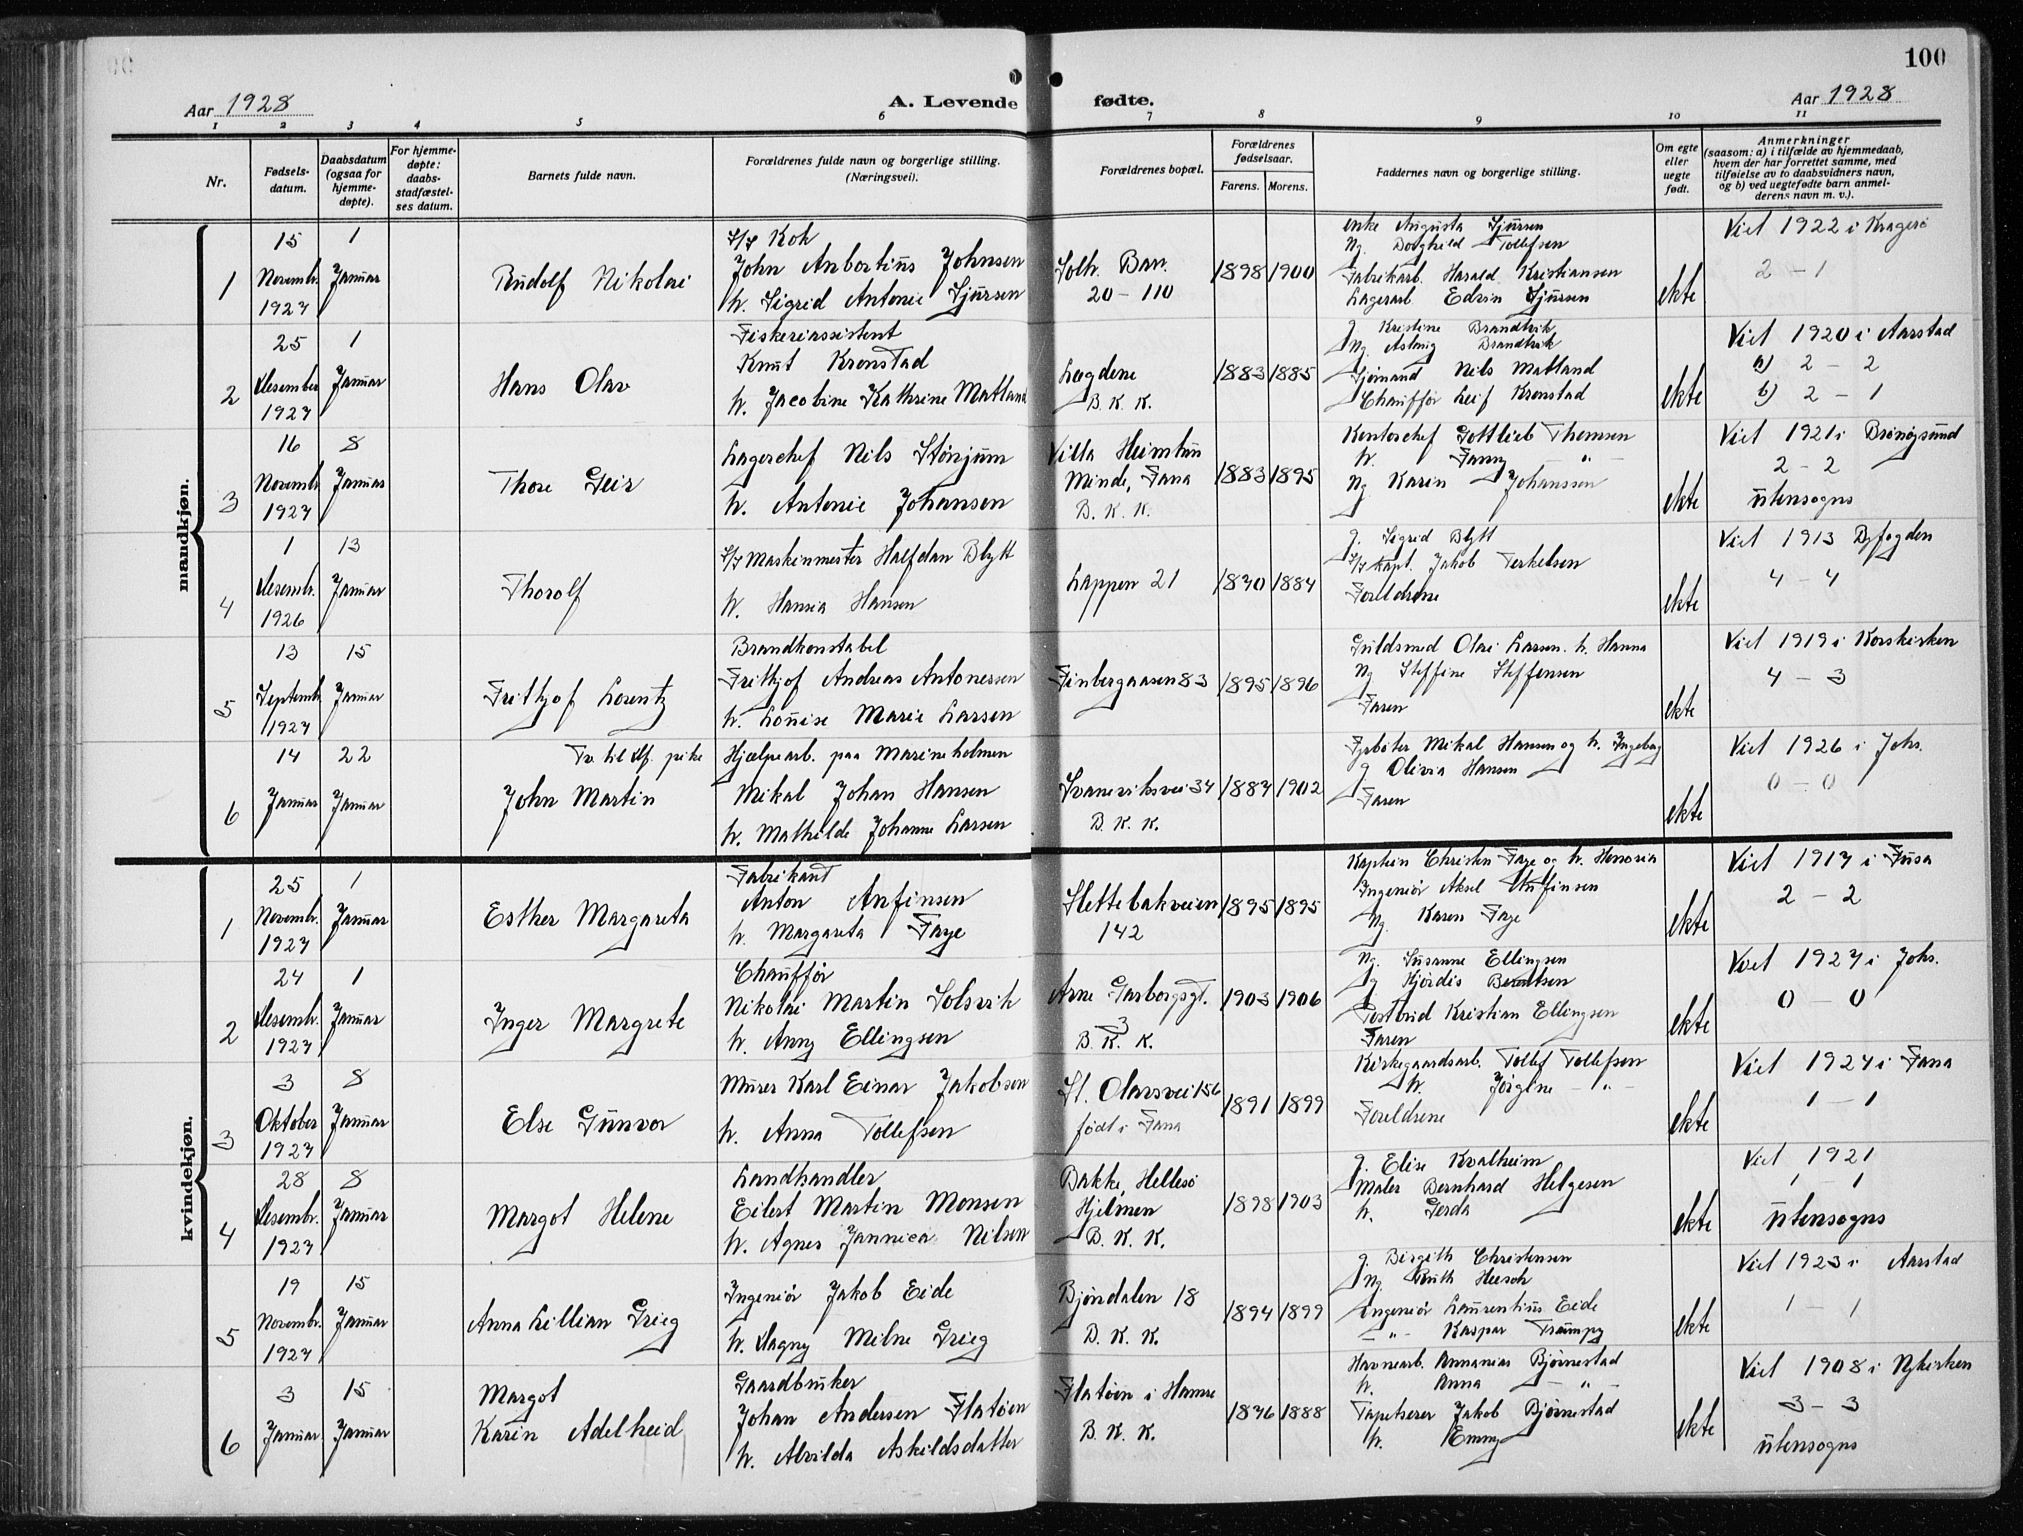 100
Aar 1928
A. Levende fødte.
Aar 1928
1 2 3 4 5 6 7 8 9 10 11
Nr.
Fødsels-
datum.
Daabsdatum
(ogsaa for
hjemme-
døpte).
For hjemme-
døpte:
daabs-
stadfæstel-
ses datum.
Barnets fulde navn.
Forældrenes fulde navn og borgerlige stilling.
(Næringsvei).
Forældrenes bopæl.
Forældrenes
fødselsaar.
Farens. Morens.
Faddernes navn og borgerlige stilling.
Om egte
eller
uegte
født.
Anmerkninger
(saasom: a) i tilfælde av hjemmedaab,
hvem der har forrettet samme, med
tilføielse av to daabsvidners navn,
og b) ved uegtefødte barn anmel-
derens navn m. v.).
mandkjøn.
1
15
Novembr.
1927
1
Januar
Rudolf Nikolai
S/S Kok
John Anbortius Johnsen
h. Sigrid Antonie Sjursen
Solh. Bar.
20-110
1898 1900
enke Augusta Sjursen
Ng. Borghild Tollefsen
Fabrikarb. Harald Kristiansen
Lagerarb Edvin Sjursen
ekte
Viet 1922 i Kragerø
2 - 1
2
25
Desember
1927
1
Januar
Hans Olav
Fiskeriassistent
Knut Kronstad
h. Jacobine Kathrine Matland
Løgdene
B. K. K.
1883 1885
g. Kristine Brandtvik
Ng. Aslaug Brandtvik
Sjømand Nils Matland
Chauffør Leif Kronstad
ekte
Viet 1920 i Aarstad
a) 2 - 2
b) 2 - 1
3
16
Novembr.
1927
8
Januar
Thore Geir
Lagerchef Nils Stønjum
h. Antonie Johansen
Villa Heimtun
Minde, Fana
B. K. K.
1883 1895
Kontorchef Gottlieb Thomsen
h. Fanny - " -
Ng Karin Johanssen
ekte
Viet 1921 i Brønøysund
2 - 2
utensogns
4
1
Desembr.
1926
13
Januar
Thorolf
S/S Maskinmester Halfdan Blytt
h. Hansia Hansen
Lappen 21
1870 1884
g. Sigrid Blytt
S/S Kapt. Jakob Terkelsen
Foreldrene
ekte
Viet 1913 Byfogden
4 - 4
5
13
Septembr.
1927
15
Januar
Frithjof Lorentz
Brandkonstabel
Frithjof Andreas Antonessen
h. Louise Marie Larsen
Finbergaasen 83
1895 1896
Guldsmed Olai Larsen. h. Hanna
Ng Steffine Steffensen
Faren
ekte
Viet 1919 i Korskirken
4 - 3
6
14
Januar
22
Januar
Tv. til df. pike
John Martin
Hjælpearb. paa Marineholmen
Mikal Johan Hansen
h. Mathilde Johanne Larsen
Svaneviksvei 34
B. K. K.
1884 1902
Fyrbøter Mikal Hansen og h. Ingeborg
g Olivia Hansen
Faren
ekte
Viet 1926 i Johs.
0 - 0
kvindekjøn.
1
25
Novembr.
1927
1
Januar
Esther Margareta
Fabrikant
Anton Anfinsen
h. Margareta Faye
Slettebakveien
142
1895 1895
Kaptein Christen Faye og h. Honoria
Ingeniør Aksel Anfinsen
Ng. Karen Faye
ekte
Viet 1917 i Fusa
2 - 2
2
24
Desembr.
1927
1
Januar
Inger Margrete
Chauffør
Nikolai Martin Solsvik
h. Anny Ellingsen
Arne Garborgsgt.
3
B. K. K.
1903 1906
Ng. Susanne Ellingsen
g Hjørdis Berntsen
Postbud Kristian Ellingsen
Faren
ekte
Viet 1927 i Johs.
0 - 0
3
3
Oktober
1927
8
Januar
Else Gunvor
Murer Karl Einar Jakobsen
h. Anna Tollefsen
St. Olavsvei 156
født i Fana
1891 1899
Kirkegaardsarb. Tollef Tollefsen
h. Jørgine - " -
Foreldrene
ekte
Viet 1924 i Fana
1 - 1
4
28
Desembr.
1927
8
Januar
Margot Helene
Landhandler
Eilert Martin Monsen
h. Agnes Jannica Nilsen
Bakke, Hellesø
Hjelmen
B. K. K.
1898 1903
g. Elise Kvalheim
Maler Bernhard Helgesen
h. Gerda
ekte
Viet 1921
1 1
utensogns
5
19
Novembr.
1927
15
Januar
Anna Lillian Grieg
Ingeniør Jakob Eide
h. Dagny Milne Grieg
Bjøndalen 18
B. K. K.
1894 1899
g. Birgith Christensen
Ng Ruth Heesch
Ingeniør Laurentius Eide
- " - Kaspar Trumpy
ekte
Viet 1923 i Aarstad
1 - 1
6
3
Januar
15
Januar
Margot
Karin Adelheid
Gaardbruker
Johan Andersen Flatøen
h. Alvilda Askildsdatter
Flatøen i Hamre
B. K. K.
1876 1888
Havnearb. Annanias Bjørnestad
h. Anna - " -
Tapetserer Jakob Bjørnestad
h. Emmy
ekte
Viet 1908 i Nykirken
3 - 3
utensogns